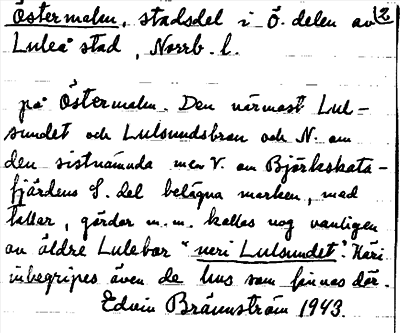 Östermalm, stadsdel i Ö. delen av 12
Luleå stad, Norrb. l.
på Östermalm. Den närmast Lul-
sundet och Lulsundsbron och N. om
den sistnämnda men V. om Björkskata-
fjärdens S. del belägna marken, med
tallar, gårdar m.m. kallas nog vanligen
av äldre Lulebor "neri Lulsundet". Häri
inbegripes även de hus som finnas där.
Edvin Brännström 1943.